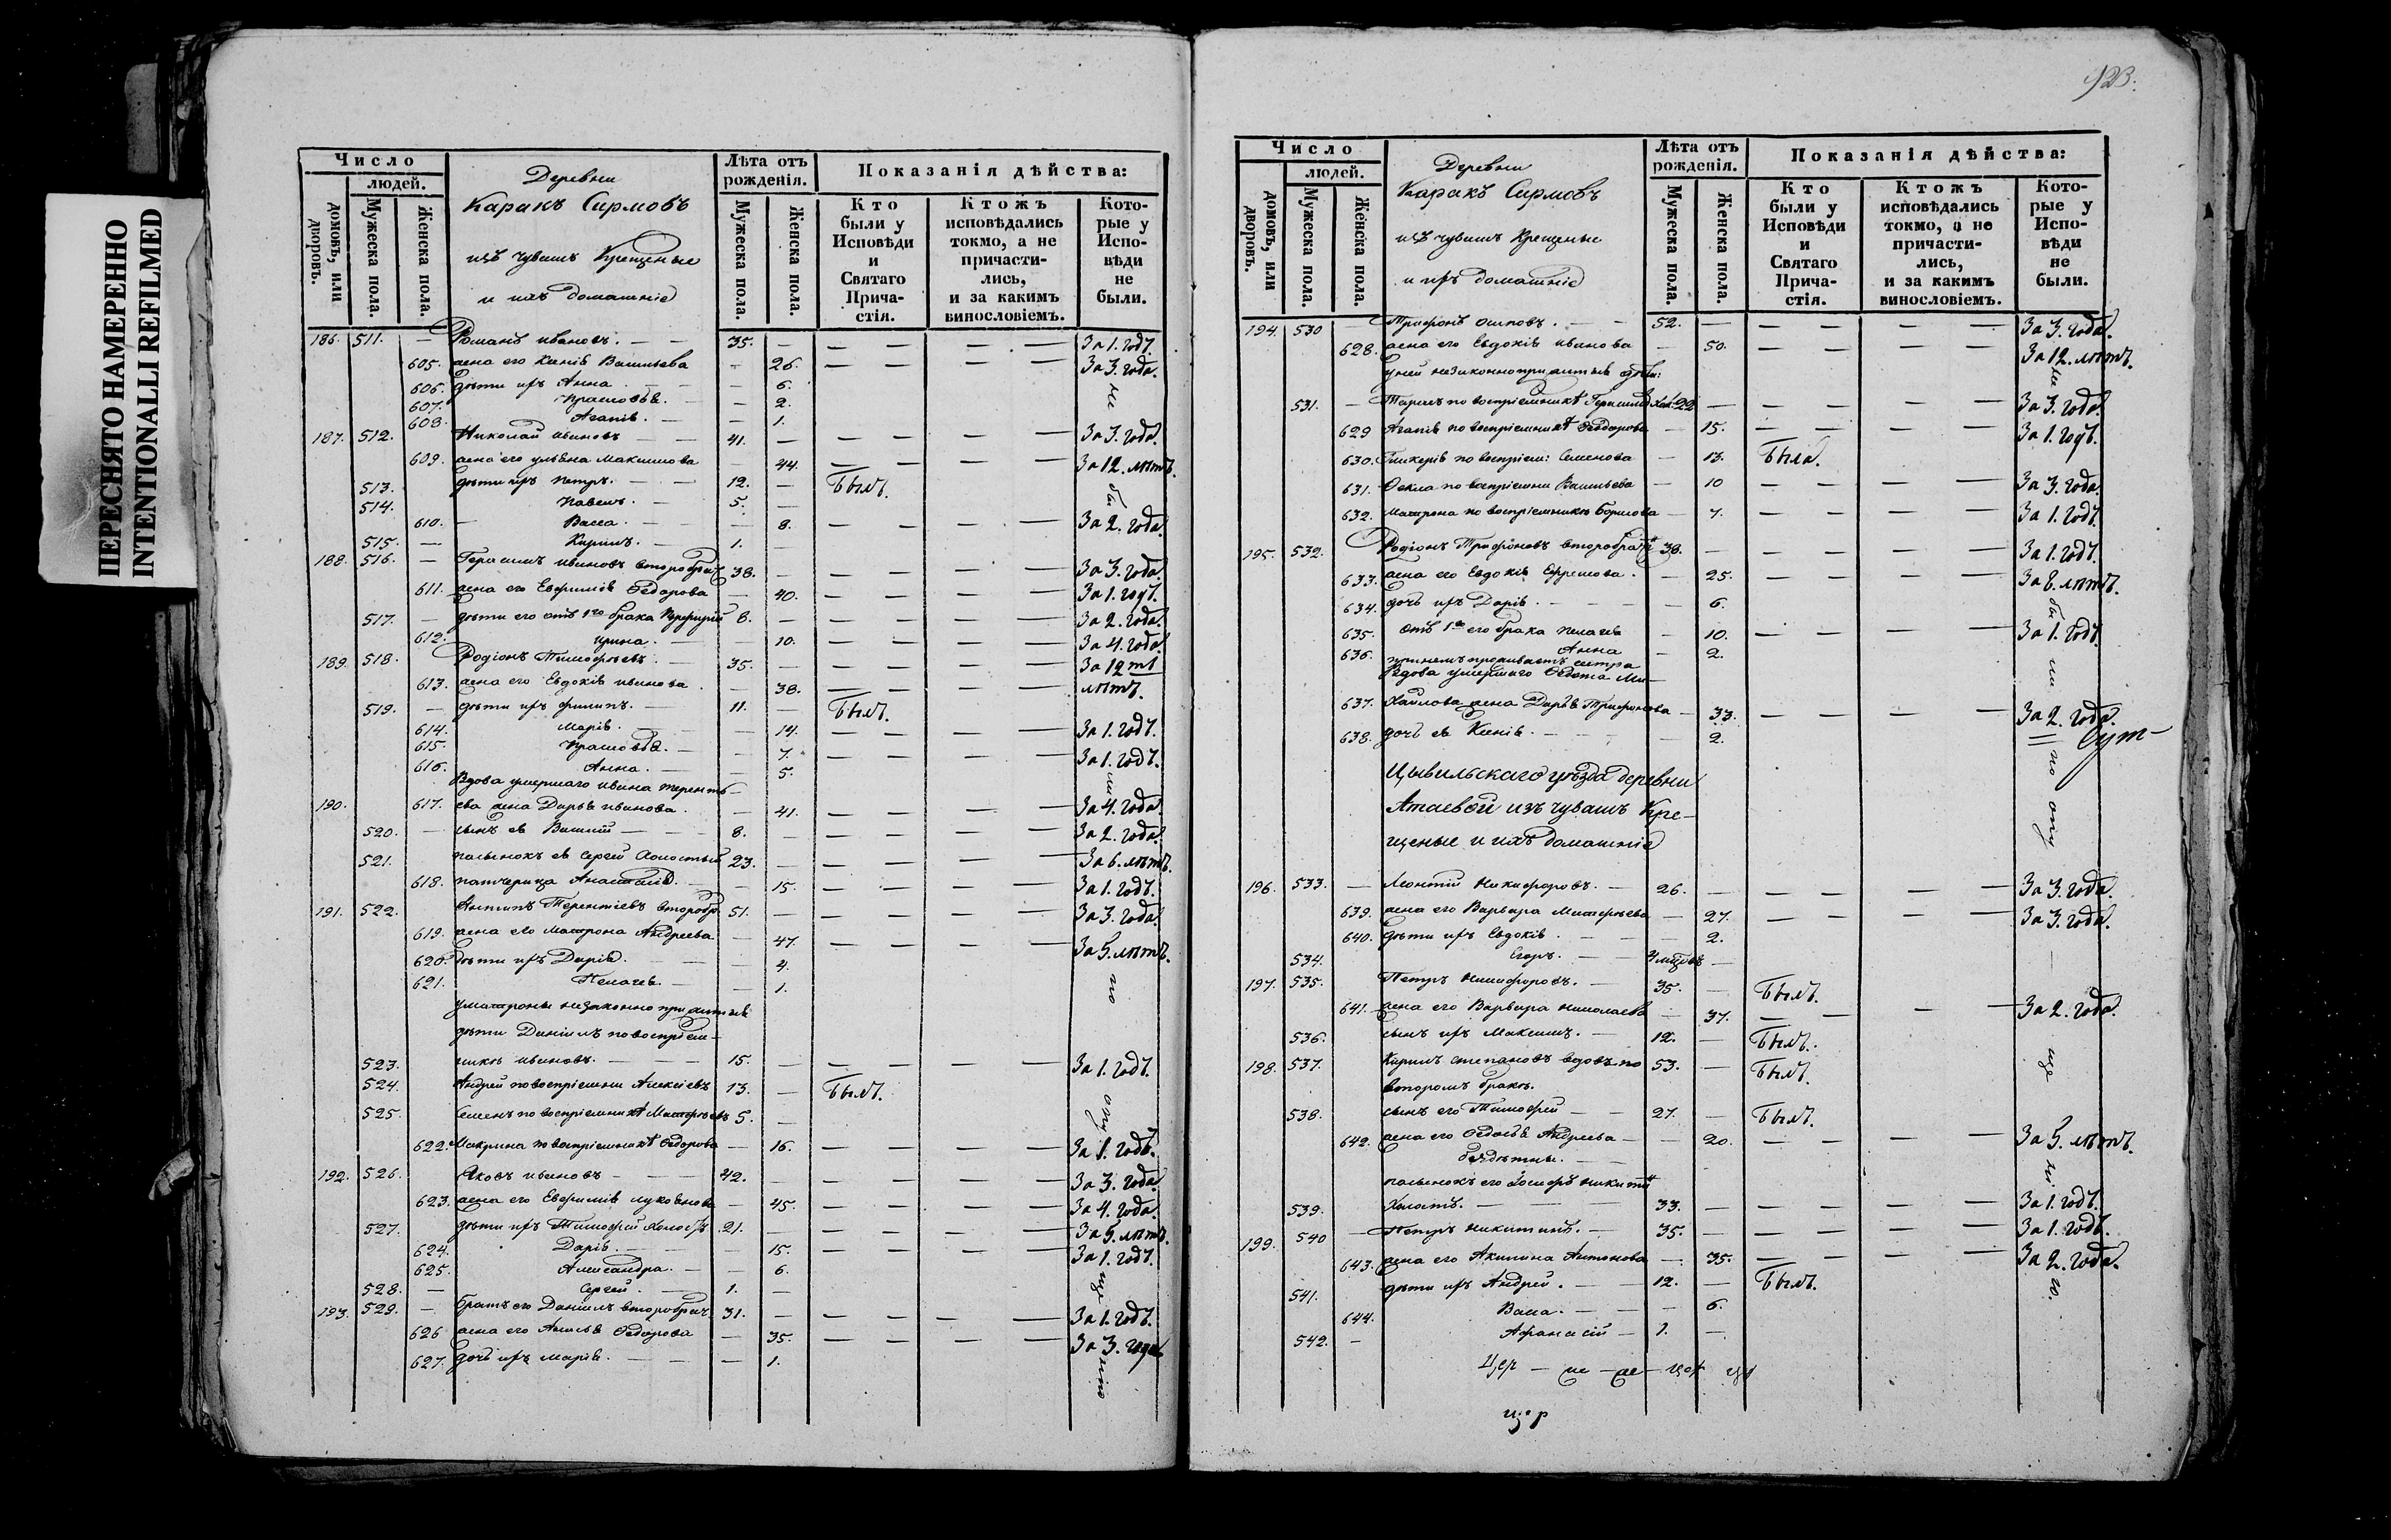 ПЕРЕСНЯТО НАМЕРЕННО
INTENTIONALLI REFILMED
Число
домовъ, или дворовъ.
людей.
Мужеска пола.
Женска пола.
Деревни
Каракъ Сирмовъ
изъ чувашъ Крещеные
и ихъ домашніе
Лѣта отъ рожденія.
Мужеска пола.
Женска пола.
Показанія дѣйства:
Кто были у Исповѣди и Святаго Причастія.
Ктожъ исповѣдались токмо, а не причастились, и за какимъ винословіемъ.
Которые у Исповѣди не были.
186. 511. — Романъ Ивановъ. — 35. — За 1. годъ.
605. жена его Ксенія Васильева — 26. За 3. года.
606. дѣти ихъ Анна — 6.
607. — 2.
608. Агапія. — 1.
187. 512. Николай Ивановъ — 41. — За 3. года.
609. жена его Ульяна Максимова — 44. За 12. лѣтъ.
513. дѣти ихъ Петръ. — 12. — Былъ.
514. Павелъ. — 5. —
610. — Васса. — 8. За 2. года.
515. — Кирилъ. — 1. —
188. 516. — Герасимъ Ивановъ второбрач. 38. — За 3. года.
611. жена его Евфимія Ѳедорова — 40. За 1. годъ.
517. — дѣти его отъ 1го брака 8. — За 2. года.
612. Ирина. — 10. За 4. года.
189. 518. Родіонъ Тимофѣевъ. — 35. — За 12ть лѣтъ.
613. жена его Евдокія Иванова. — 38.
519. — дѣти ихъ Филипъ. — 11. — Былъ.
614. Марія. — 14. За 1. годъ.
615. — 7. За 1. годъ.
616. Анна. — 5.
Вдова умершаго Ивана Теренть-
190. 617. ева жена Дарья Иванова. — 41. За 4. года.
520. — сынъ ея Василій — 8. — За 2. года.
521. пасынокъ ея Сергей Холостый 23. — За 6. лѣтъ.
618. патчерица Анастасія. — 15. За 1. годъ.
191. 522. Антипъ Терентіевъ второбр. 51. — За 3. года.
619. жена его Матрона Андреева — 47. За 5. лѣтъ.
620. дѣти ихъ Дарія. — 4.
621. Пелагея — 1.
у матроны незаконно прижитыя
дѣти Даніилъ по воспріем-
523. нику Ивановъ. — 15. — За 1. годъ.
524. Андрей по воспріемни Алексіевъ 13. — Былъ.
525. Семенъ по воспріемнику Матфѣевъ 5. —
622. Макрина по воспріемнику Ѳедорова — 16. За 1. годъ.
192. 526. Яковъ Ивановъ — 42. — За 3. года.
623. жена его Евфимія Лукоянова — 45. За 4. года.
527. дѣти ихъ Тимофей Холостъ 21. — За 5. лѣтъ.
624. Дарія. — 15. За 1. годъ.
625. Александра. — 6.
528. — Сергей. — 1. —
193. 529. — братъ его Даніилъ второбрач. 31. — За 1. годъ.
626 жена его Ѳедорова — 35. За 3. года
627. дочь ихъ Марія. — 1.
923.
Число
домовъ, или дворовъ.
людей.
Мужеска пола.
Женска пола.
Деревни
Каракъ Сирмовъ
изъ чувашъ Крещеные
и ихъ домашніе
Лѣта отъ рожденія.
Мужеска пола.
Женска пола.
Показанія дѣйства:
Кто были у Исповѣди и Святаго Причастія.
Ктожъ исповѣдались токмо, а не причастились, и за какимъ винословіемъ.
Которые у Исповѣди не были.
194. 530 — Трифонъ Осиповъ. — 52. — За 3. года.
628. жена его Евдокія Иванова — 50. За 12. лѣтъ.
у ней незаконно прижитыя дѣти:
531. — по воспріемнику Герасимовъ Хол. 22 — За 3. года.
629 Агапія по воспріемнику Ѳедорова — 15. За 1. годъ.
630. Гликерія по воспріем: Семенова — 13. Была.
631. Ѳекла по воспріемни Васильева — 10 За 3. года.
632. Матрона по воспріемнику Борисова — 7. За 1. годъ.
195. 532. Родіонъ Трифоновъ второбрач 38. — За 1. годъ.
633. жена его Евдокія Ефремова. — 25. За 8. лѣтъ.
634. дочь ихъ Дарія. — 6.
635. отъ 1го его брака Пелагея — 10. За 1. годъ.
636. Анна — 2.
при немъ проживаетъ сестра
Вдова умершаго Ѳедота Ми-
637. хайлова жена Дарья Трифонова — 33. За 2. года.
638. дочь ея Ксенія. — 2.
Цывильскаго уѣзда деревни
Атаевой изъ чувашъ Кре-
щеные и ихъ домашніе
196. 533. — Леонтій Никифоровъ. — 26. — За 3. года.
639. жена его Варвара Матфѣева — 27. За 3. года.
640. дѣти ихъ Евдокія. — 2.
534. Егоръ. —
197. 535. Петръ Никифоровъ. — 35. — Былъ.
641. жена его Варвара Николаева — 37. За 2. года.
536. сынъ ихъ Максимъ. — 12. — Былъ.
198. 537. Кирилъ Степановъ вдовъ по 53. — Былъ.
второмъ бракѣ.
538. сынъ его Тимофей — 27. — Былъ.
642. жена его Ѳедосья Андреева — 20. За 5. лѣтъ.
бездѣтны. —
пасынокъ его Іосифъ Никитинъ
539. Холостъ. — 33. — За 1. годъ.
199. 540 — Петръ Никитинъ. — 35. — За 1. годъ.
643. жена его Акилина Антонова — 35. За 2. года.
541. дѣти ихъ Андрей. — 12. — Былъ.
644. Васса. — 6.
542. — Афанасій — 1. —